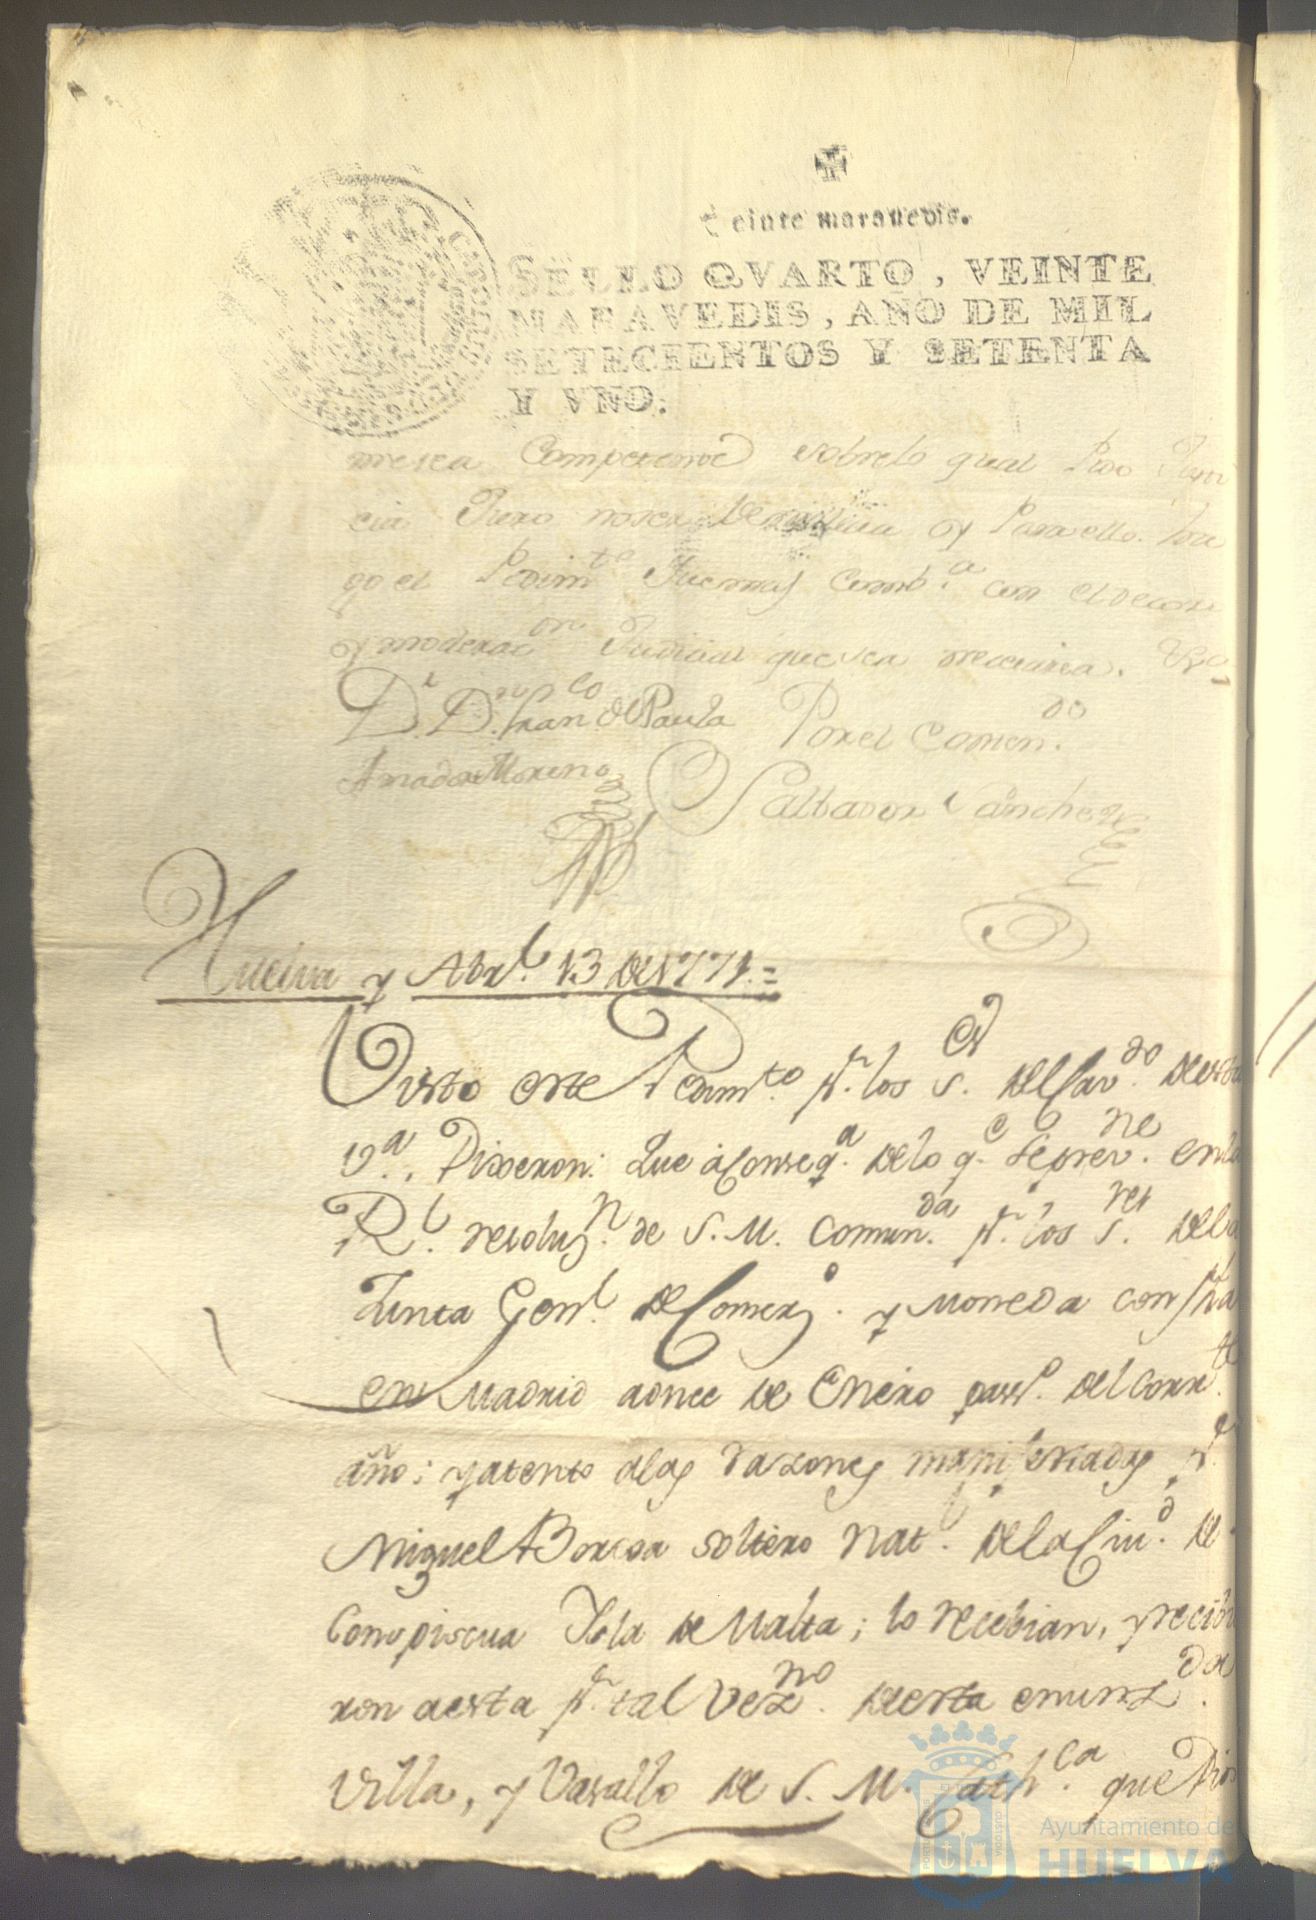 Veinte marauedis.
SELLO QVARTO, VEINTE
MARAVEDIS, AÑO DE MIL
SETECIENTOS Y SETENTA
Y VNO.
mesea Competente sobrelo qual Pido Justi
cia Juro nosea de malicia y Para ello. ha
go el Pedim.to Jue mas Comb.a con el
y moderac.on Judicial quesea nececiaria.
D.r D.n Fran.co de Paula Por el Comon.do
Amador Moreno Salbador Sanchez
Huelva y Abr.l 13 de 1771.=
Visto este Pedim.to p.r los S.es del Cav.do de esta
V.a. Dixeron: Que á Conseq.a de lo q.e se prev.ne en la
R.l resoluz.n de S. M. Comun.da p.r los S.res de la
Junta Gen.l de Comerz.o y Moneda con fha
en Madrid a once de Enero pass.o del Corr.te
año: y atento a las razones manifestadas p.r
Miguel Borcoa soltero Nat.l de la Ciu.d de
Conspiscua Ysla de Malta; lo recebian, y recibie
ron a esta p.r tal Vez.no de esta enunz.da
Villa, y Vasallo de S. M. Cath.ca que Dios
Ayuntamiento de
HUELVA